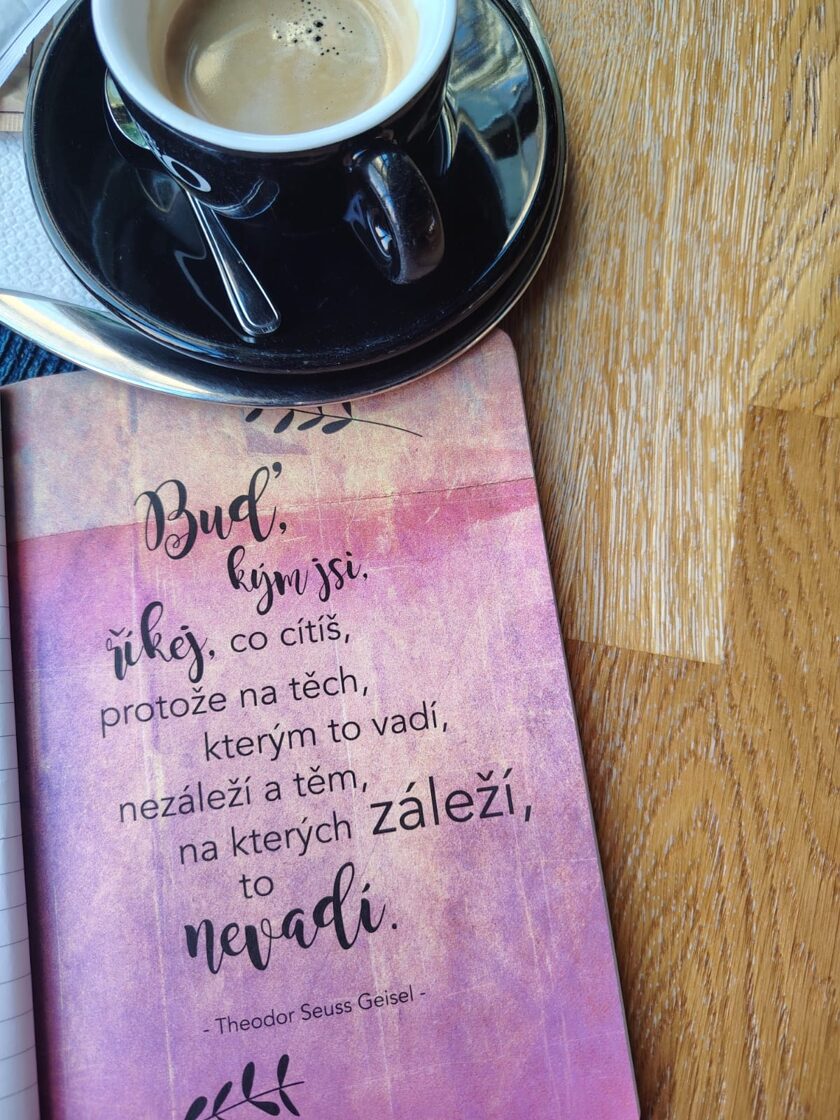 Buď,
kým jsi,
říkej, co cítíš,
protože na těch,
kterým to vadí,
nezáleží a těm,
na kterých záleží,
to
nevadí.
- Theodor Seuss Geisel -